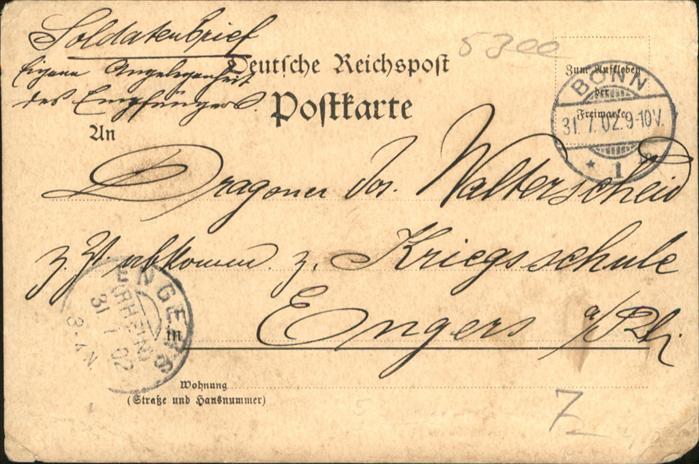 Soldatenbrief
Eigene Angelegenheit
des Empfängers
5300
Deutsche Reichspost
Postkarte
Zum Aufkleben
der
Freimarke
BONN
31.7.02.9-10V.
* 1
An
Dragoner Jos. Walterscheid
z. Zt. abkomm. z. Kriegsschule
in
Engers a/Rh.
ENGERS
(RHEIN)
31 7 02
3-4N
Wohnung
(Straße und Hausnummer)
7